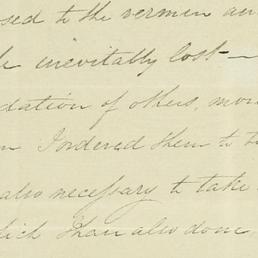 sed to the vermen an
le inevitably lost —
dation of others, mor
I ordered them to b
also necessary to take
hich I have also done.